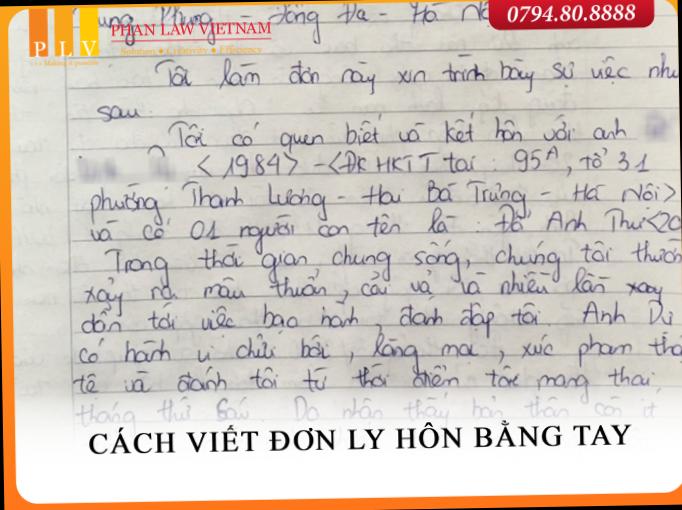 PLV
PHAN LAW VIETNAM
Solution ● Creativity ● Efficiency
0794.80.8888
Khung - Đống Đa - Hà
Tôi làm đơn này xin trình bày sự việc như
sau.
Tôi có quen biết và kết hôn với anh
<1984> - <ĐK HKTT tại: 95A, tổ 31
phường Thanh Lương - Hai Bà Trưng - Hà Nội>
và có 01 người con tên là: Đỗ Anh Thư <20
Trong thời gian chung sống, chúng tôi thườn
xảy ra mâu thuẫn, cãi vả và nhiều lần xay
dẫn tới việc bạo hành, đánh đập tôi. Anh Dư
có hành vi chửi bới, lăng mạ, xúc phạm thâ
tê và đánh tôi từ thời điểm tôi mang thai
tháng thứ Sáu. Do nhận thấy bản thân còn ít
CÁCH VIẾT ĐƠN LY HÔN BẰNG TAY